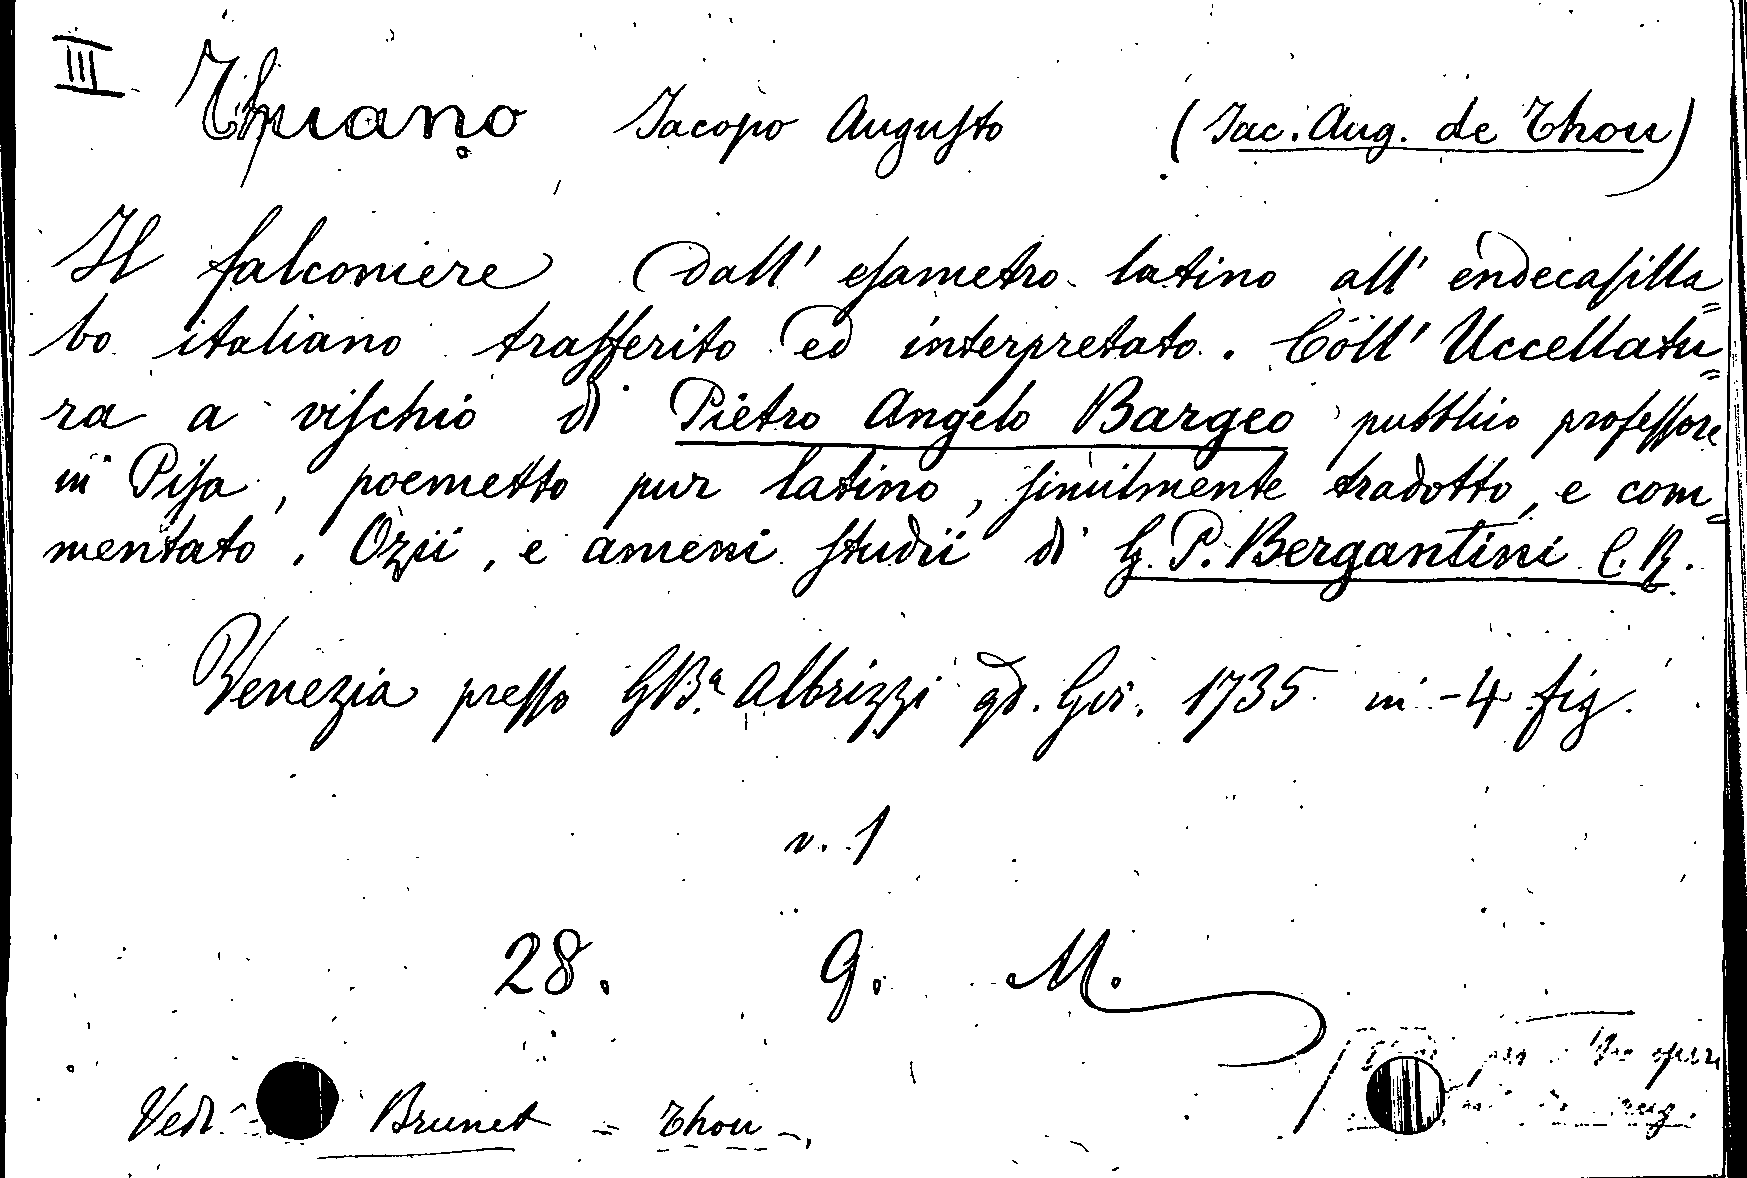 III Thuano Jacopo Augusto (Jac. Aug. de Thou)
Il falconiere dall' esametro latino all' endecasilla=
bo italiano trasferito ed interpretato. Coll' Uccellatu=
ra a vischio di Pietro Angelo Bargeo pubblico professore
in Pisa, poemetto pur latino, similmente tradotto, e com=
mentato. Ozii, e ameni studii di G. P. Bergantini C. R.
Venezia presso GBa. Albrizzi qd. Gir. 1735 in-4 fig.
v. 1
28. G. M.
Vedi Brunet = Thou -